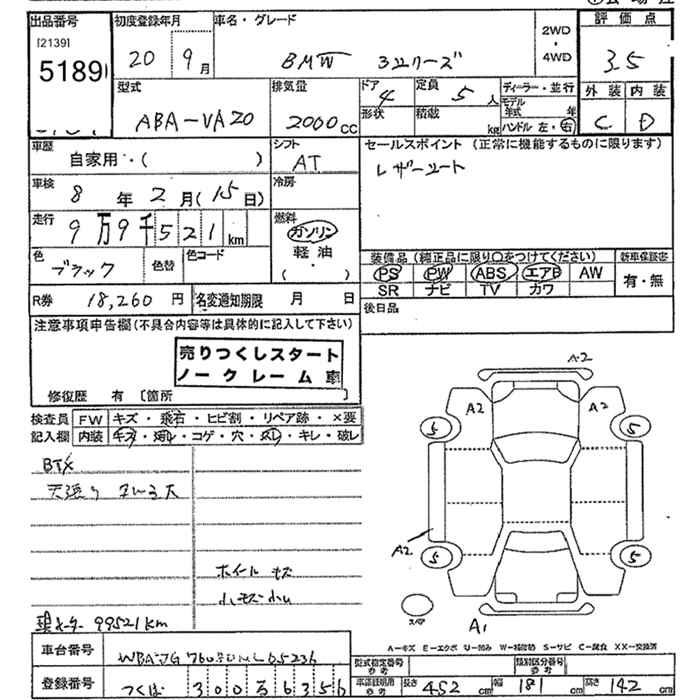 出品番号 初度登録年月 車名・グレード 評価点
[2139]
5189
20 9月 BMW 3シリーズ 2WD・4WD 3.5
外装 内装
C D
型式 排気量 ドア 定員 ディーラー・並行
ABA-VA20 2000cc 4 5人 モデル年式 年
形状 積載 kg ハンドル 左・右
車歴 シフト セールスポイント (正常に機能するものに限ります)
自家用・( ) AT レザーシート
車検 冷房
8年2月(15日)
走行 燃料
9万9千521km ガソリン
軽油
( ・ )
色 色替 色コード
ブラック
装備品 (純正品に限り○をつけてください) 新車保証書
PS PW ABS エアB AW 有・無
SR ナビ TV カワ
R券 18,260円 名変通知期限 月 日 後日品
注意事項申告欄(不具合内容等は具体的に記入して下さい)
売りつくしスタート
ノークレーム車
修復歴 有 [箇所 ]
検査員 FW キズ・飛石・ヒビ割・リペア跡・×要
記入欄 内装 キズ・汚レ・コゲ・穴・スレ・キレ・破レ
A2
A2 A2
5 5
A2
5 5
スペア
A1
ホイールキズ
小キズ小U
99521km
A=キズ E=エクボ U=凹み W=補修跡 S=サビ C=腐食 XX=交換済
車台番号 型式指定番号 参考 類別区分番号 参考
登録番号 つくば 300 る 6356 車庫証明用 参考 長さ 452cm 幅 181cm 高さ 142cm